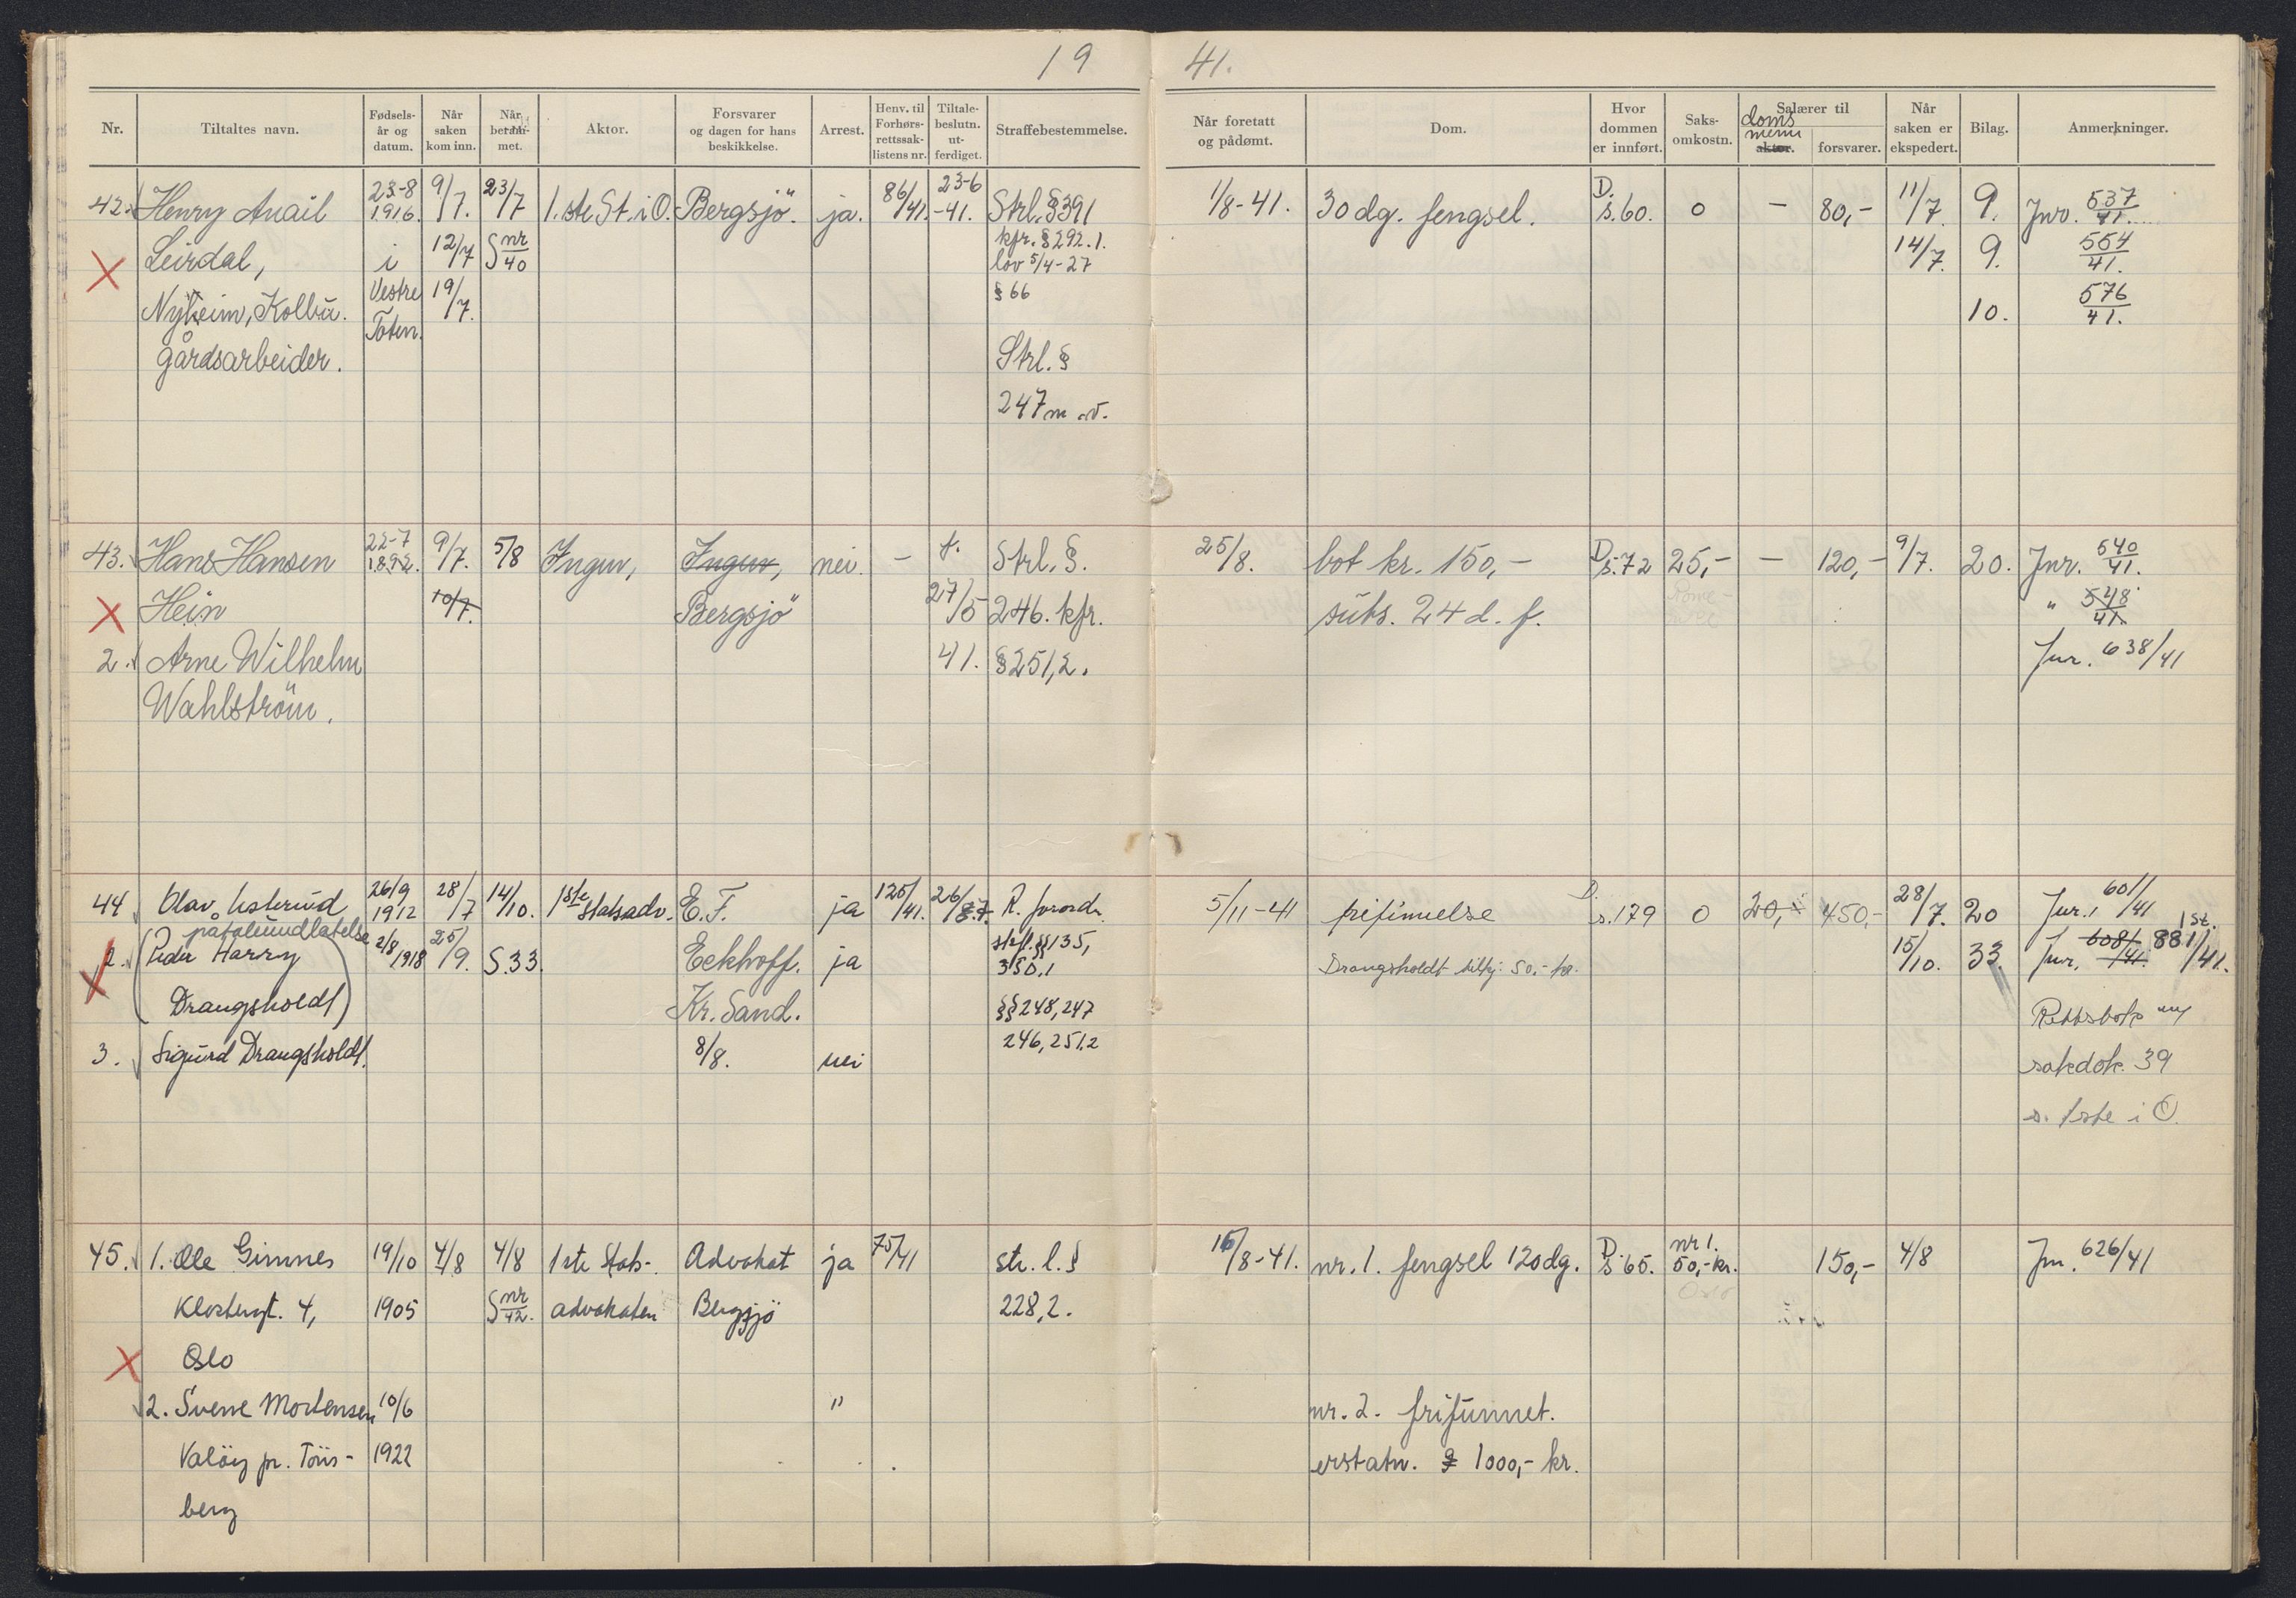 19 41.
Nr. Tiltaltes navn. Fødsels-år og datum. Når saken kom inn. Når beram-met. Aktor. Forsvarer og dagen for hans beskikkelse. Arrest. Henv. til Forhørs-rettssak-listens nr. Tiltale-beslutn. ut-ferdiget. Straffebestemmelse. Når foretatt og pådømt. Dom. Hvor dommen er innført. Saks-omkostn. Salærer til doms menn aktor. forsvarer. Når saken er ekspedert. Bilag. Anmerkninger.
42. Henry Anail 23-8 1916. 9/7. 23/7 1.ste St. i O. Bergsjö. ja. 86/41. 23-6 -41. Strl. § 391 1/8-41. 30 dg. fengsel. D. s. 60. 0 - 80,- 11/7 9. Jnr. 537/41.
Leirdal, i 12/7 S nr 40 kfr. § 292.1. 14/7. 9. 554/41.
lov 5/4-27
Nyheim, Kolbu. Vestre 19/7. § 66 10. 576/41.
Toten.
gårdsarbeider. Strl. §
247 m.v.
43. Hans Hansen 22-7 1892. 9/7. 5/8 Inguv, Inguv, nei. - t. Strl. §. 25/8. bot kr. 150,- D s. 72 25,- - 120,- 9/7. 20. Jnr. 540/41.
X Hein 10/7. Bergsjö 27/5 246. kfr. subs. 24 d. f. " 548/41.
2. Arne Wilhelm 41. § 251,2. Jnr. 638/41
Wahlström.
44 Olav 26/9 1912 28/7 14/10. 1ste Statsadv. E. F. ja 125/41. 26/8.7. R. forordn. 5/11-41 frifinnelse D. s. 179 0 20,- 450,- 28/7. 20 Jnr. 601/41
påtaleundlatelse 1 St.
2. (Peder Harry 2/8 1918 25/9. S. 33. Eckhoff. ja strfl. §§ 135, Drangsholdt tilkj. 50,- kr. 15/10. 33. Jnr. 608/41. 881/41.
350.1
Drangsholdt) Kr. Sand. §§ 248, 247 Rettsbok
3. Sigurd Drangsholdt. 8/8. nei 246, 251.2 sakdok. 39
s. 1ste i O.
45. 1. Ole Gimnes 19/10 4/8 4/8 1ste Stats- Advokat ja 75/41 str. l. § 16/8-41. nr. 1. fengsel 120 dg. D s 65. nr 1. 50,- kr. 150,- 4/8 Jnr. 626/41
Klostergt. 4, 1905 S nr 42. advokaten Bergsjö 228,2. Oslo
X Oslo
2. Sverre Mortensen 10/6 " nr. 2. frifunnet.
Valöy pr. Töns- 1922 erstatn. 1000,- kr.
berg